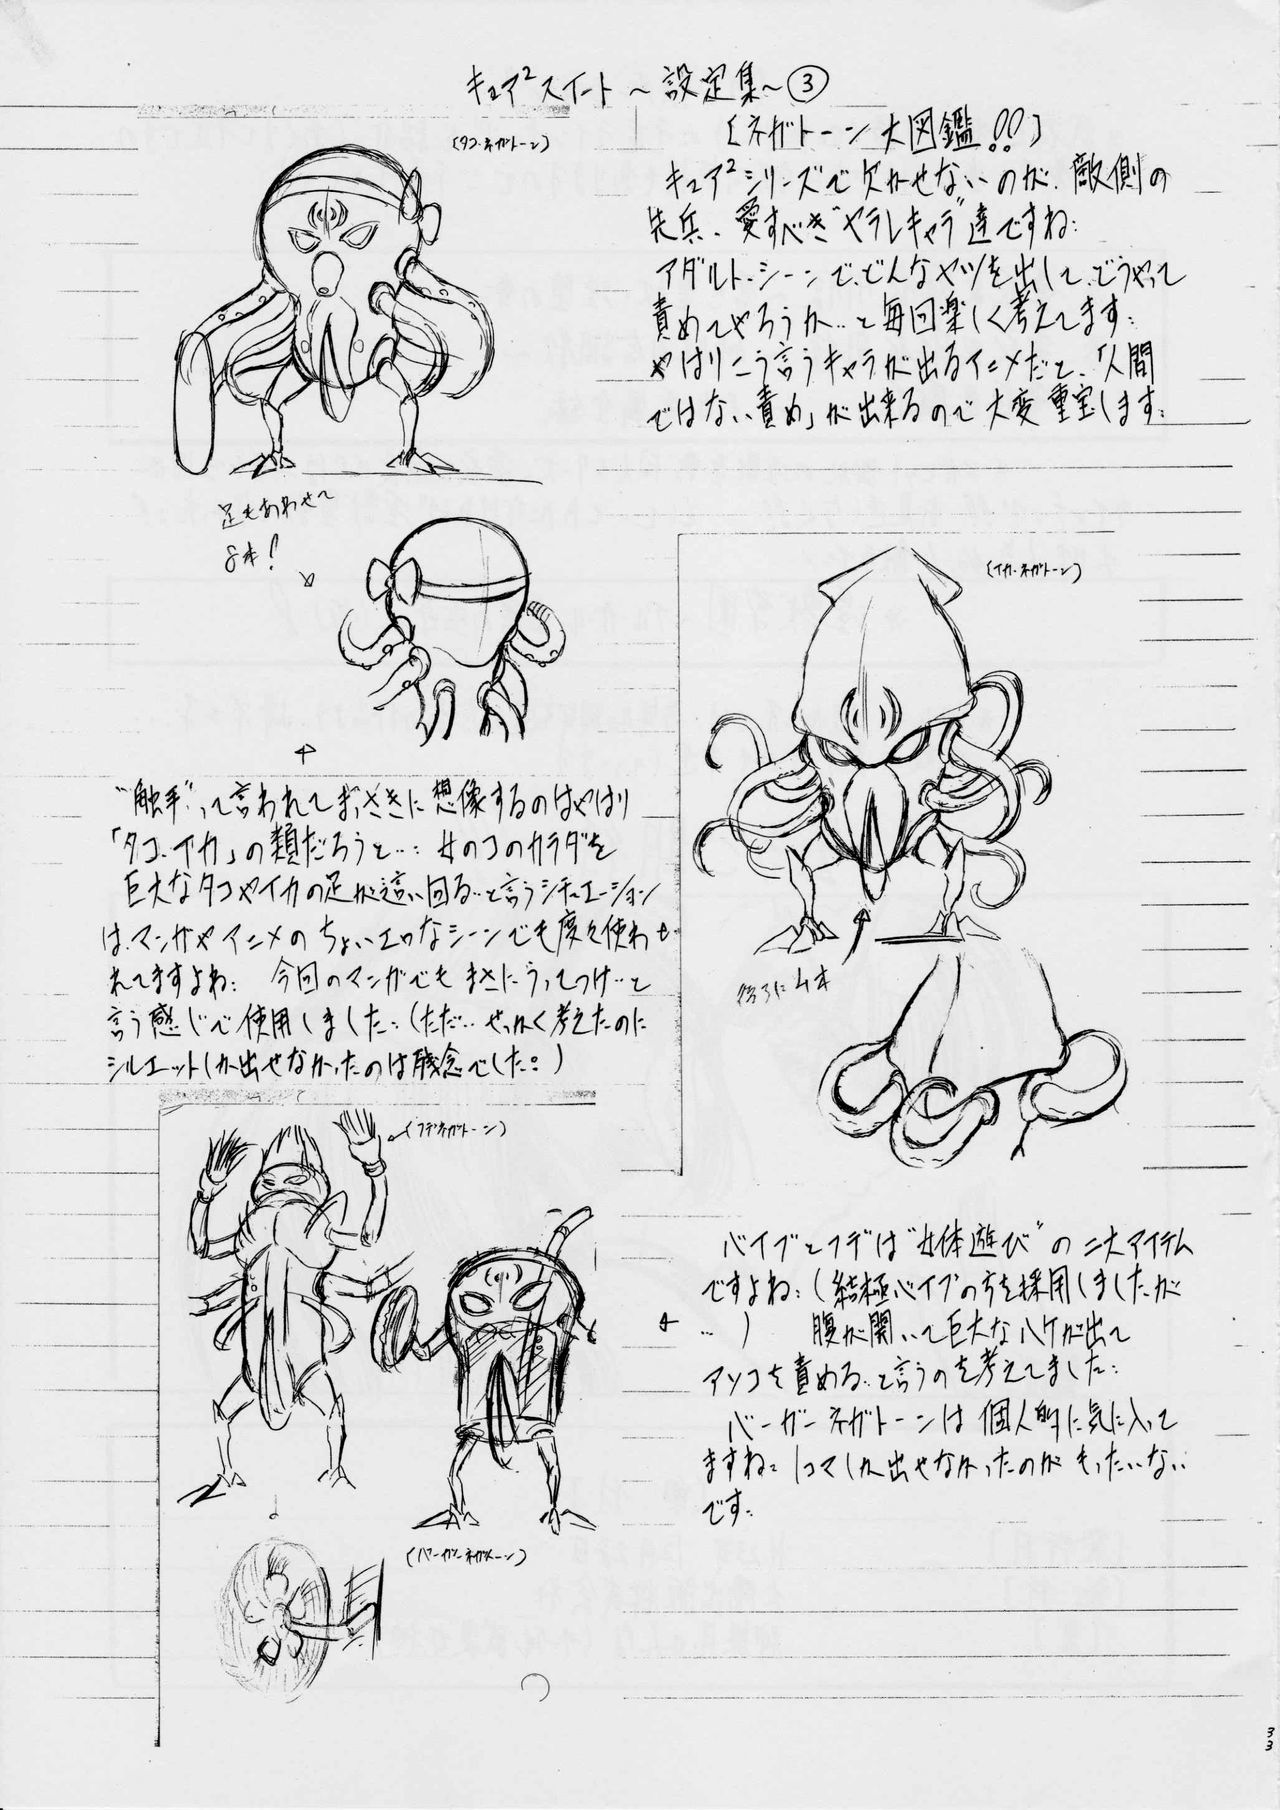 キュア²スイート ～設定集～③
〔ネガトーン大図鑑!!〕
(タコ・ネガトーン)
キュア²シリーズで欠かせないのが、敵側の
先兵、愛すべき"ヤラレキャラ"達ですね。
アダルト・シーンで、どんなヤツを出して、どうやって
責めてやろうか…と毎回楽しく考えてます。
やはりこう言うキャラが出るアニメだと、「人間
ではない責め」が出来るので大変重宝します。
足もあわせて
8本!
(イカ・ネガトーン)
後ろに4本
"触手"って言われてまっさきに想像するのはやはり
「タコ、イカ」の類だろうと…。女のコのカラダを
巨大なタコやイカの足が這い回る…と言うシチュエーション
は、マンガやアニメのちょいエロなシーンでも度々使わ
れてますよね。今回のマンガでもまさにうってつけ…と
言う感じで使用しました。(ただ…せっかく考えたのに
シルエットしか出せなかったのは残念でした。)
(フデネガトーン)
(バーガーネガトーン)
バイブとフデは"女体遊び"の二大アイテム
ですよね。(結極バイブの方を採用しましたが
…) 腹が開いて巨大なハケが出て
アソコを責める…と言うのを考えてました。
バーガーネガトーンは個人的に気に入って
ますね。1コマしか出せなかったのがもったいない
です。
33